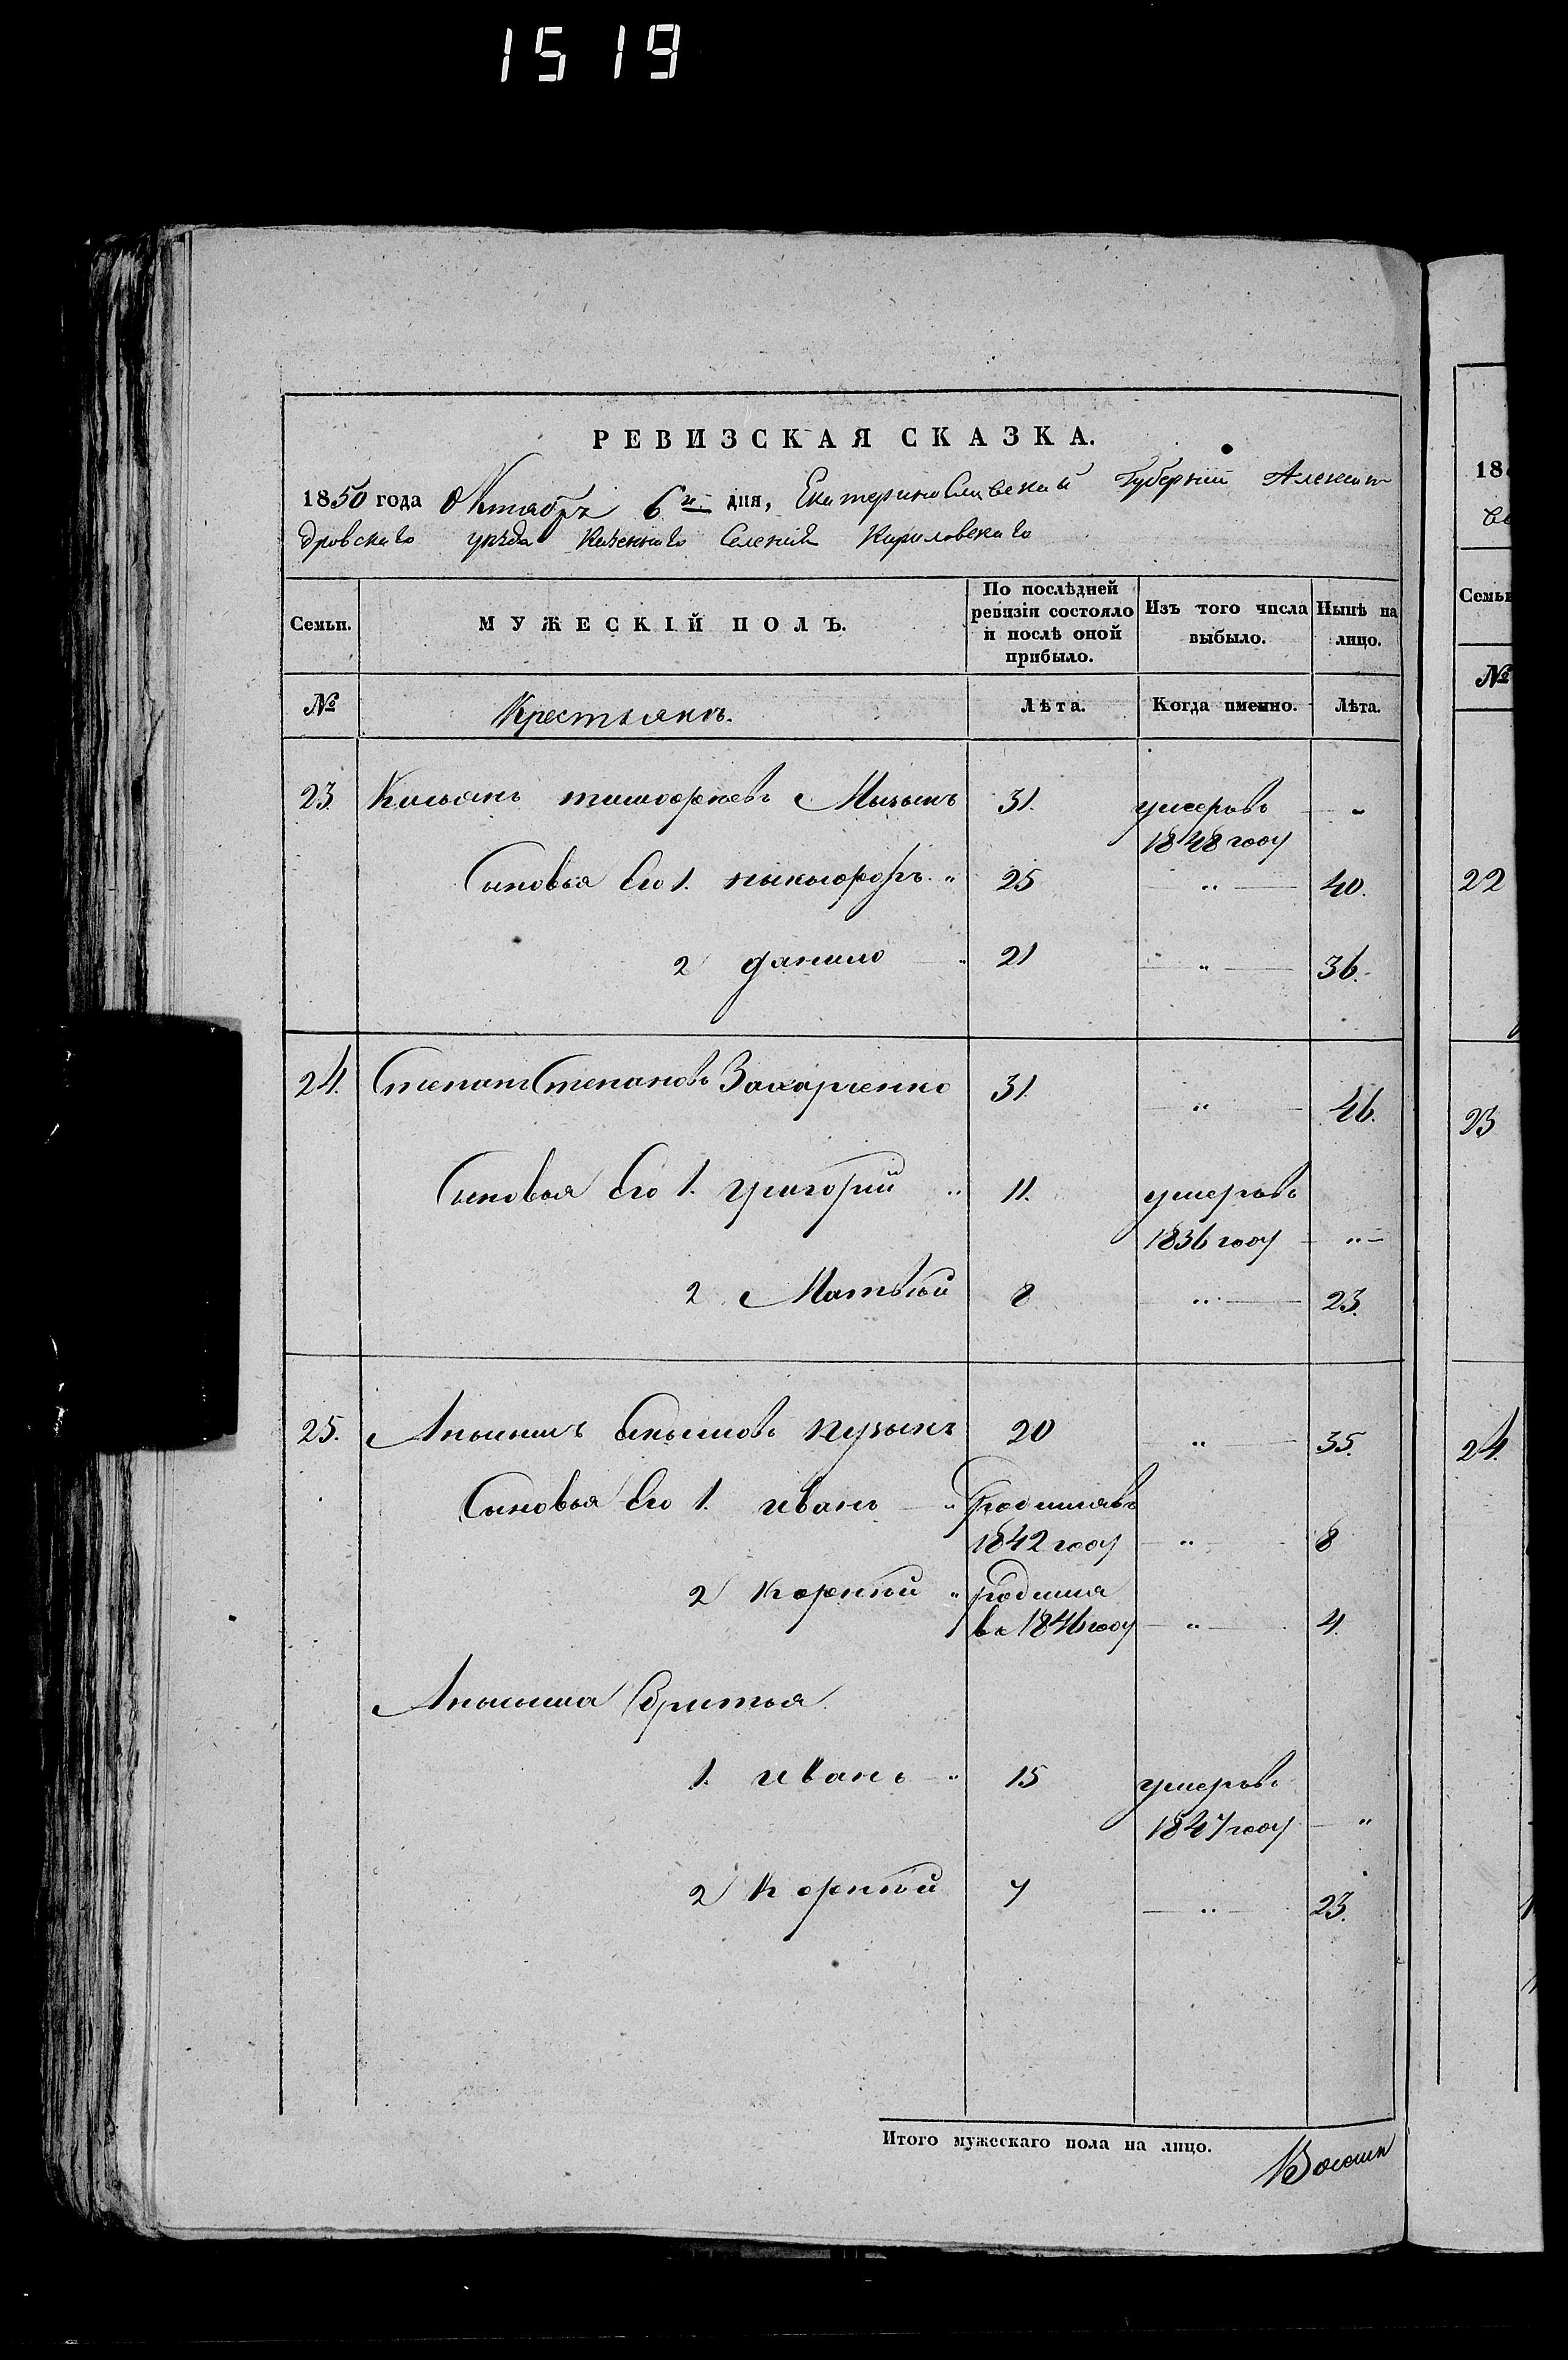 1519
РЕВИЗСКАЯ СКАЗКА.
1850 года Октября 6го дня, Екатеринославской Губернии Алексан
дровскаго уезда Казеннаго Селения Кириловскаго
Семьи. МУЖЕСКІЙ ПОЛЪ. По послѣдней ревизіи состояло и послѣ оной прибыло. Изъ того числа выбыло. Нынѣ на лицо.
№ Крестьянъ. Лѣта. Когда именно. Лѣта.
23. Касьянъ тимофеевъ 31. умеръ въ "
1848 году
Сыновья Его 1. ныкыфоръ " 25 " 40.
2 данило " 21 " 36.
24. Степанъ Степановъ Захарченко 31. " 46.
Сыновья Его 1. григорий " 11. умеръ въ
1836 году "
2 Матвѣй 8 " 23.
25. 20 " 35.
Сыновья Его 1. иванъ " родился въ
1842 году " 8
2 корнѣй " родился
въ 1846 году " 4.
братья
1. иванъ " 15 умеръ въ
1847 году "
2 корнѣй 7 " 23.
Итого мужескаго пола на лицо.
18
Семьи
№
22
23
24.